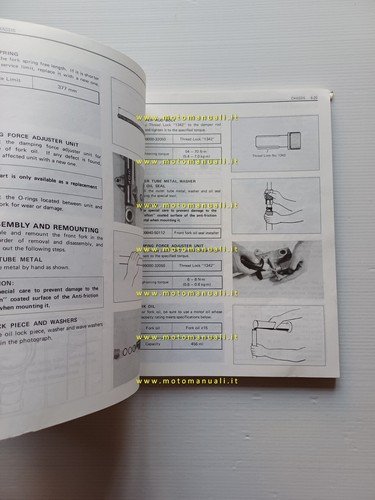 CHASSIS
PRING
the fork spring free length. If it is shorter
service limit, replace it with a new one.
e Limit
377 mm
NG FORCE ADJUSTER UNIT
ct the damping force adjuster unit for
of fork oil. If any defect is found,
affected unit with a new one.
art is only available as a replacement
ck the O-rings located between unit and
for wear or damage.
SEMBLY AND REMOUNTING
ble and remount the front fork in the
order of removal and disassembly, and
out the following steps.
TUBE METAL
e metal by hand as shown.
ION:
pecial care to prevent damage to the
n" coated surface of the Anti-friction
when mounting it.
CK PIECE AND WASHERS
oil lock piece, washer and wave washers
in the photograph.
CHASSIS
Thread Lock "1342" to the damper rod
and tighten is to the specified torque.
99000-32050
Thread Lock "1342"
Thread Lock No. 1342
TER TUBE METAL, WASHER
OIL SEAL
the outer tube metal, washer and oil seal
the special tool.
special care to prevent damage to the
coated surface of the Anti-friction
when mounting it.
Front fork oil seal installer
PING FORCE ADJUSTER UNIT
to the specified torque.
Thread Lock "1342"
tightening torque
6 – 8 N·m
(0.6 – 0.8 kg·m)
RK OIL
or fork oil, be sure to use a motor oil whose
viscosity rating meets specifications below.
Fork oil
Fork oil #15
Capacity
www.motomanuali.it
www.motomanuali.it
www.motomanuali.it
www.motomanuali.it
www.motomanuali.it
www.motomanuali.it